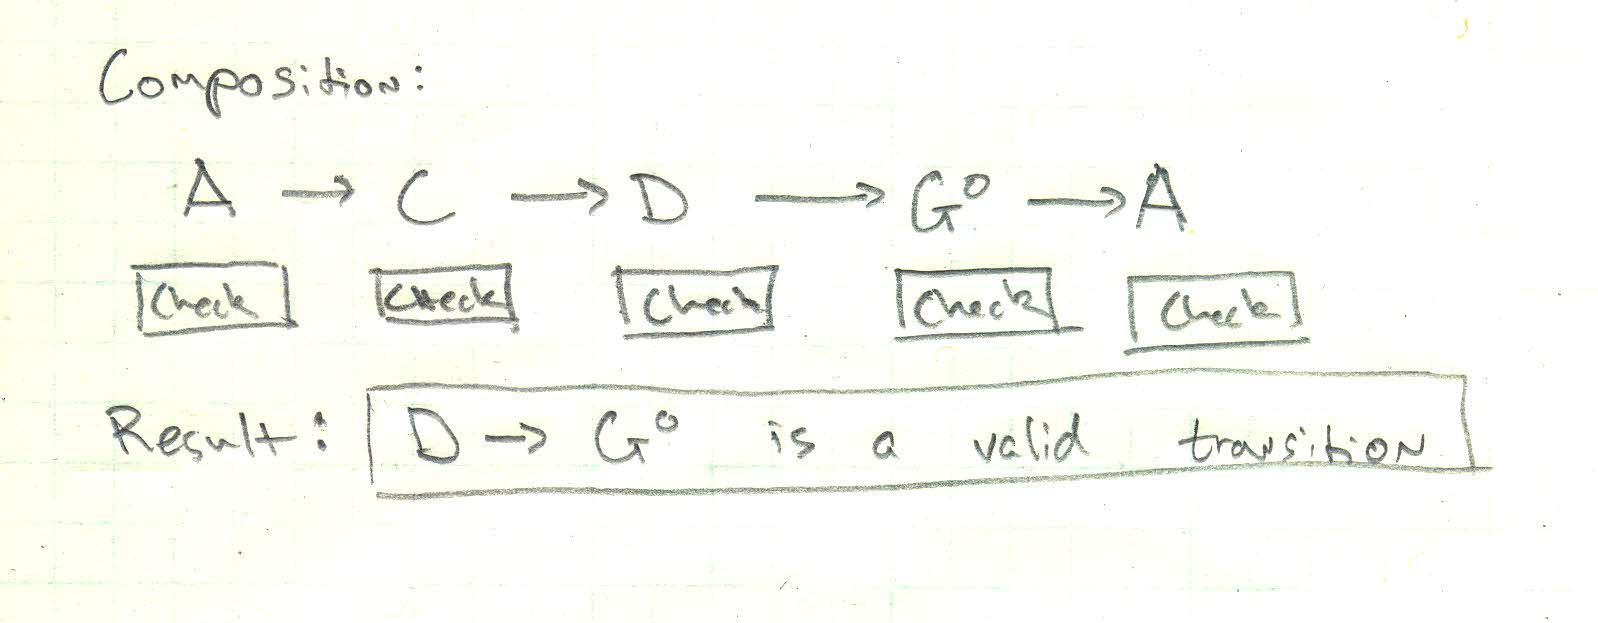 Composition:
A → C → D → G° → A
Check Check Check Check Check
Result: D → G° is a valid transition